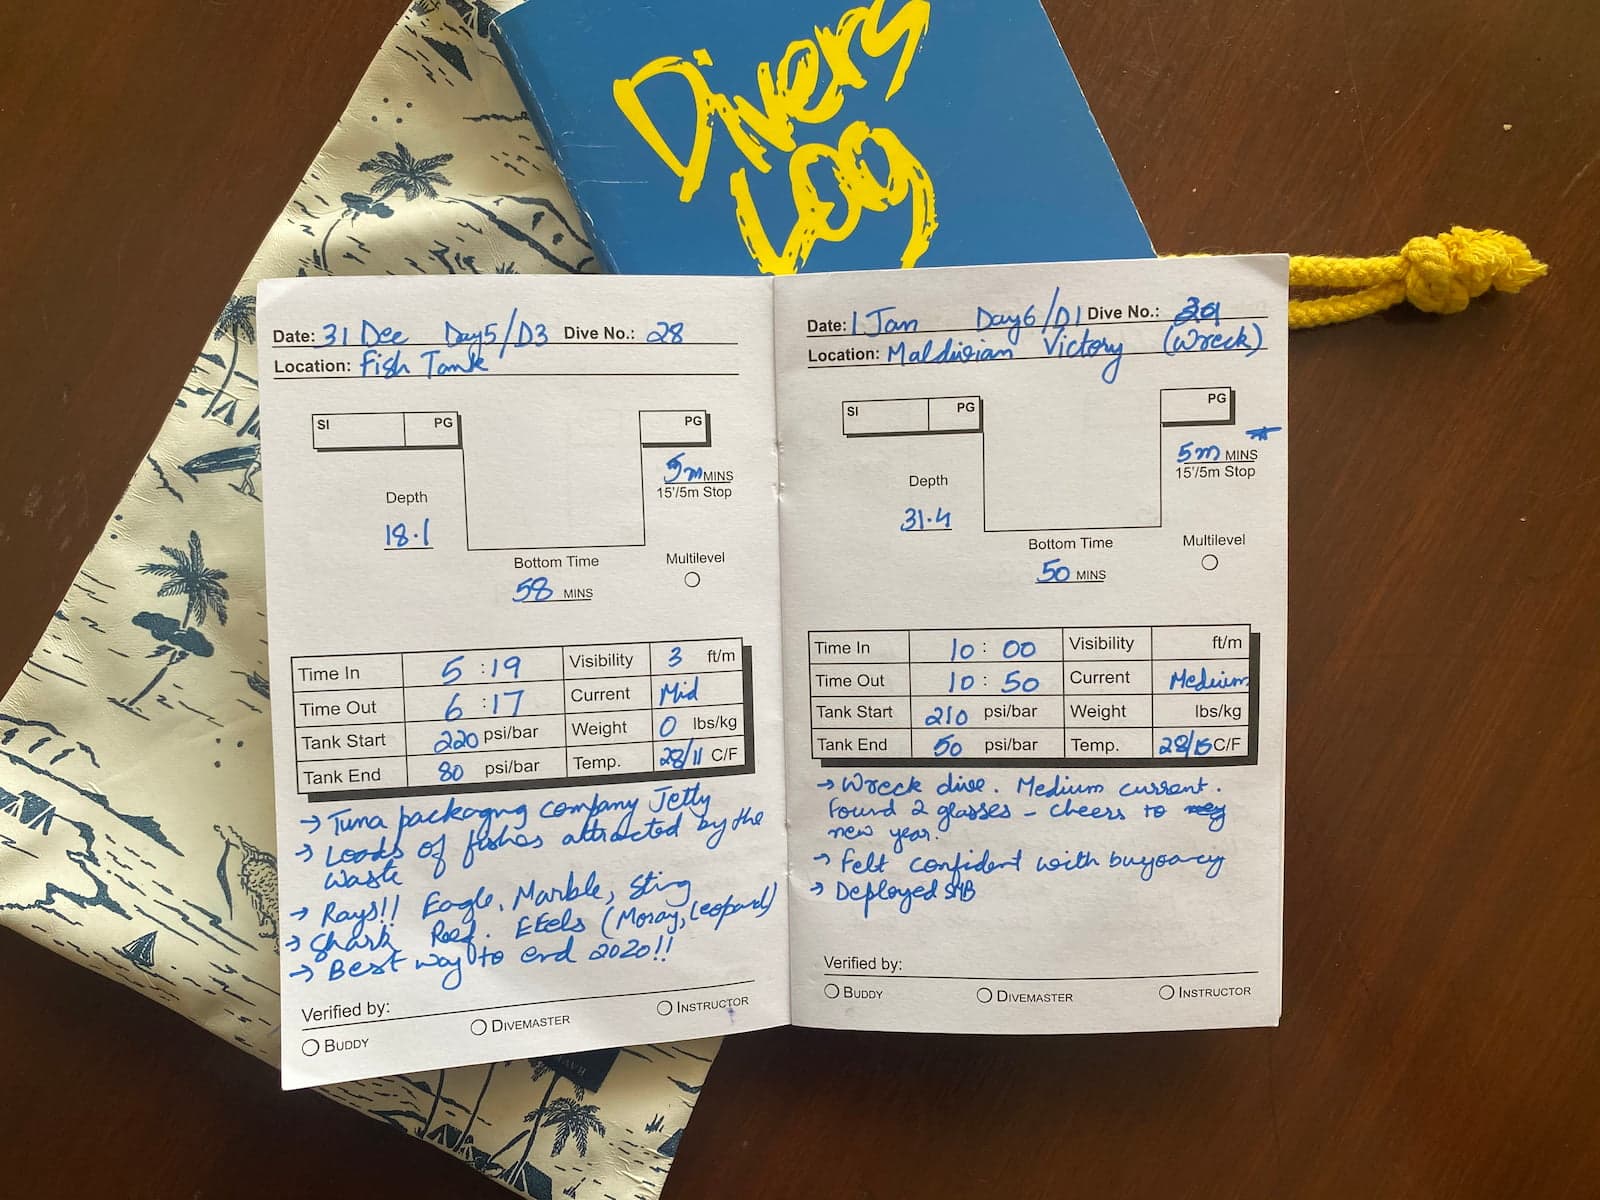 Divers
Log
Date: 31 Dec Day5/D3 Dive No.: 28
Location: Fish Tank
SI PG PG
5m MINS
15'/5m Stop
Depth
18.1
Bottom Time
58 MINS
Multilevel
Time In 5:19 Visibility 3 ft/m
Time Out 6:17 Current Mid
Tank Start 220 psi/bar Weight 0 lbs/kg
Tank End 80 psi/bar Temp. 28/11 C/F
→ Tuna packaging company Jetty
→ Loads of fishes attracted by the
waste
→ Rays!! Eagle, Marble, Sting
→ Shark Reef. Eels (Moray, Leopard)
→ Best way to end 2020!!
Verified by:
BUDDY DIVEMASTER INSTRUCTOR
Date: 1 Jan Day6/D1 Dive No.:
Location: Maldivian Victory (Wreck)
SI PG PG
5m MINS
15'/5m Stop
Depth
31.4
Bottom Time
50 MINS
Multilevel
Time In 10:00 Visibility ft/m
Time Out 10:50 Current Medium
Tank Start 210 psi/bar Weight lbs/kg
Tank End 50 psi/bar Temp. 28/15 C/F
→ Wreck dive. Medium current.
Found 2 glasses - cheers to
new year.
→ Felt confident with buyoancy
→ Deployed SMB
Verified by:
BUDDY DIVEMASTER INSTRUCTOR